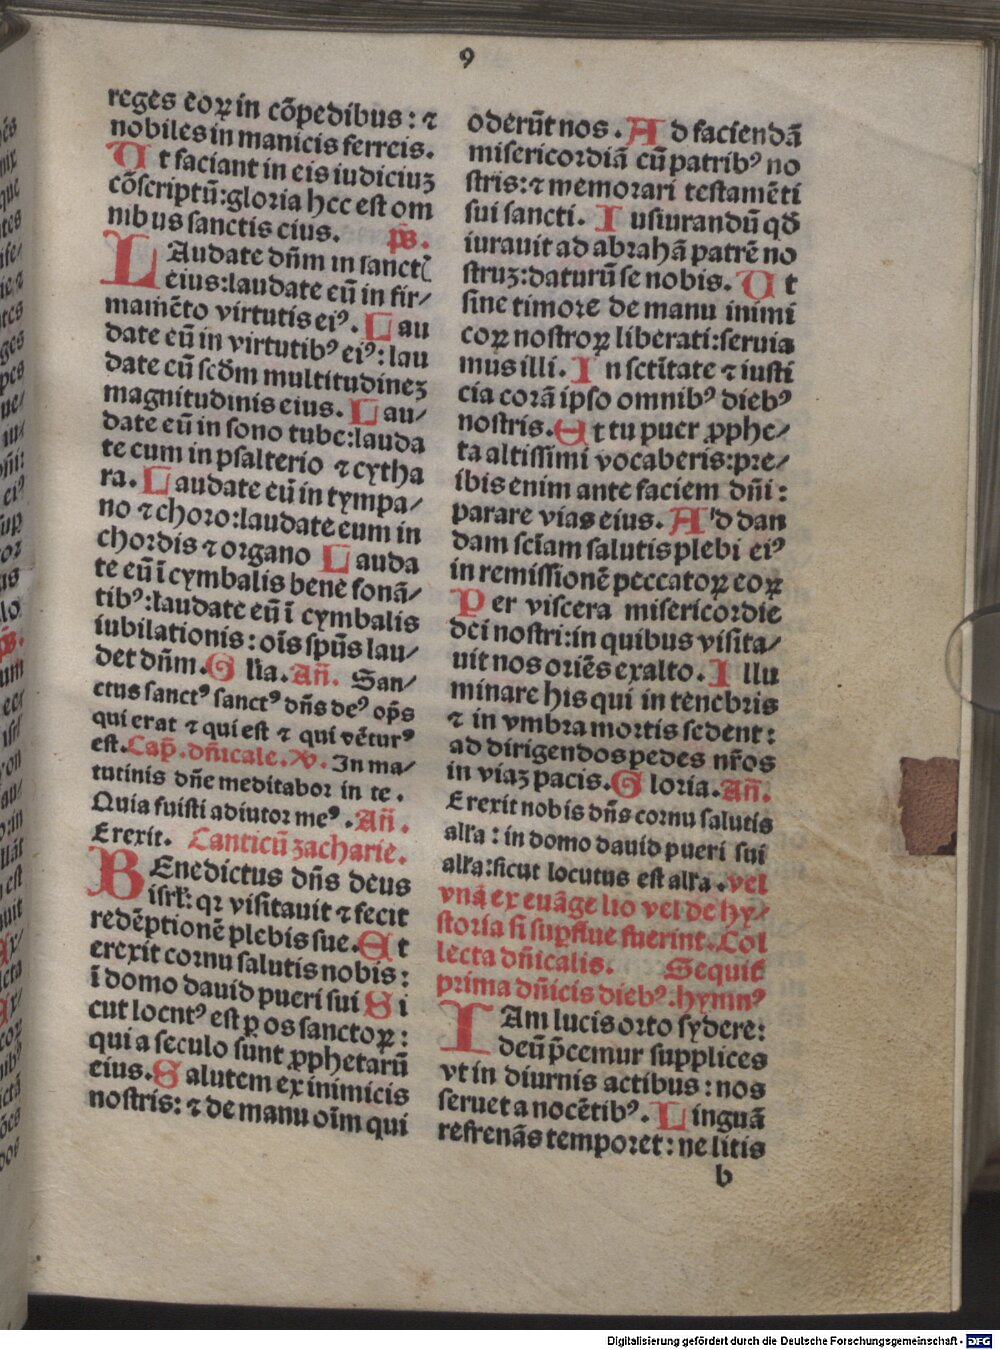 9
reges eoꝝ in cõpedibus: ⁊
nobiles in manicis ferreis.
Ut faciant in eis iudiciuꝫ
cõscriptũ: gloria hec est om
nibus sanctis eius. p̄s.
LAudate dñm in sanctĩ
eius: laudate eũ in fir⸗
mamẽto virtutis eiꝰ. Lau
date eũ in virtutibꝰ eiꝰ: lau
date eũ scd̃m multitudineꝫ
magnitudinis eius. Lau⸗
date eũ in sono tube: lauda
te eum in psalterio ⁊ cytha
ra. Laudate eũ in tympa⸗
no ⁊ choro: laudate eum in
chordis ⁊ organo Lauda
te eũ ĩ cymbalis bene sonã⸗
tibꝰ: laudate eũ ĩ cymbalis
iubilationis: oĩs sp̃us lau⸗
det dñm. Gl̃ia. Añ. San⸗
ctus sanctꝰ sanctꝰ dñs deꝰ op̃s
qui erat ⁊ qui est ⁊ qui vẽturꝰ
est. Cap̃. dñicale. xv. In ma⸗
tutinis dñe meditabor in te.
Quia fuisti adiutor meꝰ. Añ.
Erexit. Canticũ zacharie.
BEnedictus dñs deus
isrl̃: qꝛ visitauit ⁊ fecit
redẽptionẽ plebis sue. Et
erexit cornu salutis nobis:
ĩ domo dauid pueri sui Si
cut locutꝰ est ꝑ os sanctoꝝ:
qui a seculo sunt ꝓphetarũ
eius. Salutem ex inimicis
nostris: ⁊ de manu oĩm qui
oderũt nos. Ad faciendã
misericordiã cũ patribꝰ no
stris: ⁊ memorari testamẽti
sui sancti. Iusiurandũ qd̃
iurauit ad abrahã patrẽ no
struꝫ: daturũ se nobis. Ut
sine timore de manu inimi
coꝝ nostroꝝ liberati: seruia
mus illi. In sctĩtate ⁊ iusti
cia corã ipso omnibꝰ diebꝰ
nostris. Et tu puer ꝓphe⸗
ta altissimi vocaberis: pre⸗
ibis enim ante faciem dñi:
parare vias eius. Ad dan
dam sciãm salutis plebi eiꝰ
in remissionẽ peccatoꝝ eoꝝ
Per viscera misericordie
dei nostri: in quibus visita⸗
uit nos oriẽs ex alto. Illu
minare his qui in tenebris
⁊ in vmbra mortis sedent:
ad dirigendos pedes nr̃os
in viaꝫ pacis. Gloria. Añ.
Erexit nobis dñs cornu salutis
all̃a: in domo dauid pueri sui
all̃a: sicut locutus est all̃a. vel
vnã ex euãgelio vel de hy⸗
storia si suꝑflue fuerint. Col
lecta dñicalis. Sequit᷑
prima dñicis diebꝰ. hymnꝰ
IAm lucis orto sydere:
deũ p̃cemur supplices
vt in diurnis actibus: nos
seruet a nocẽtibꝰ. Linguã
refrenãs temporet: ne litis
b
Digitalisierung gefördert durch die Deutsche Forschungsgemeinschaft - DFG